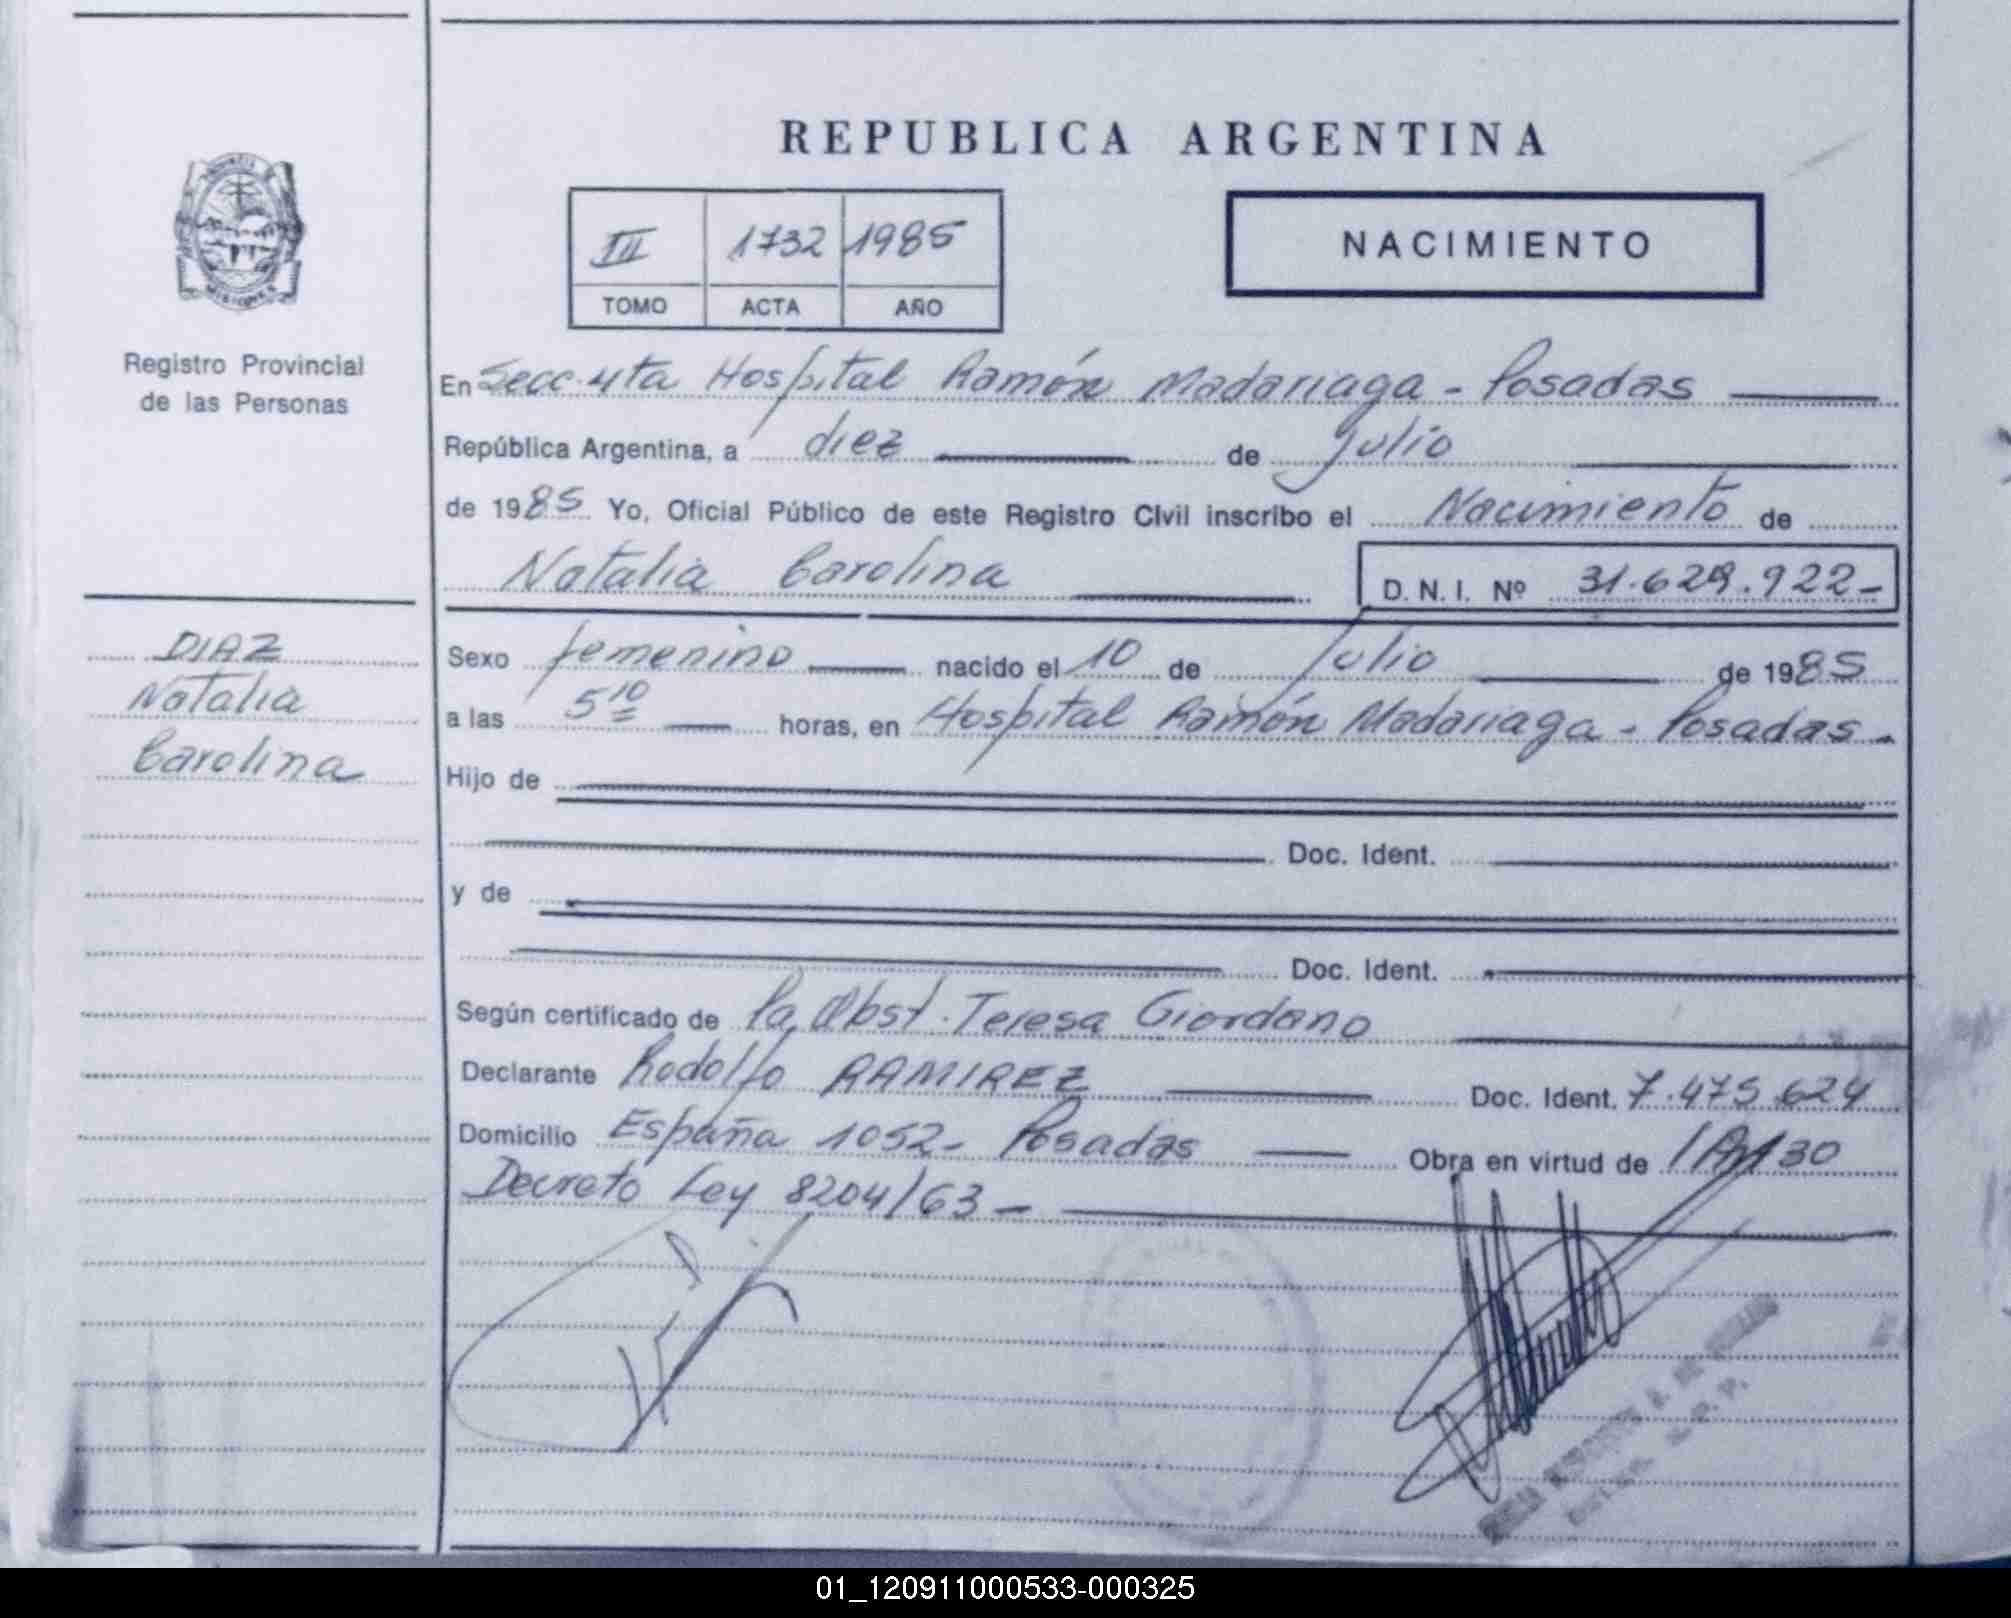 REPUBLICA ARGENTINA
III 1732 1985
TOMO ACTA AÑO
NACIMIENTO
MISIONES
Registro Provincial
de las Personas
En Secc. 4ta Hospital Ramón Madariaga - Posadas
República Argentina, a diez de Julio
de 1985 Yo, Oficial Público de este Registro Civil inscribo el Nacimiento de
Natalia Carolina D. N. I. Nº 31.629.922-
DIAZ
Natalia
Carolina
Sexo femenino nacido el 10 de Julio de 1985
a las 5 10 horas, en Hospital Ramón Madariaga - Posadas -
Hijo de
Doc. Ident.
y de
Doc. Ident.
Según certificado de la Obst. Teresa Giordano
Declarante Rodolfo RAMIREZ Doc. Ident. 7.475.624
Domicilio España 1052 - Posadas Obra en virtud de 30
Decreto Ley 8204/63 -
01_120911000533-000325